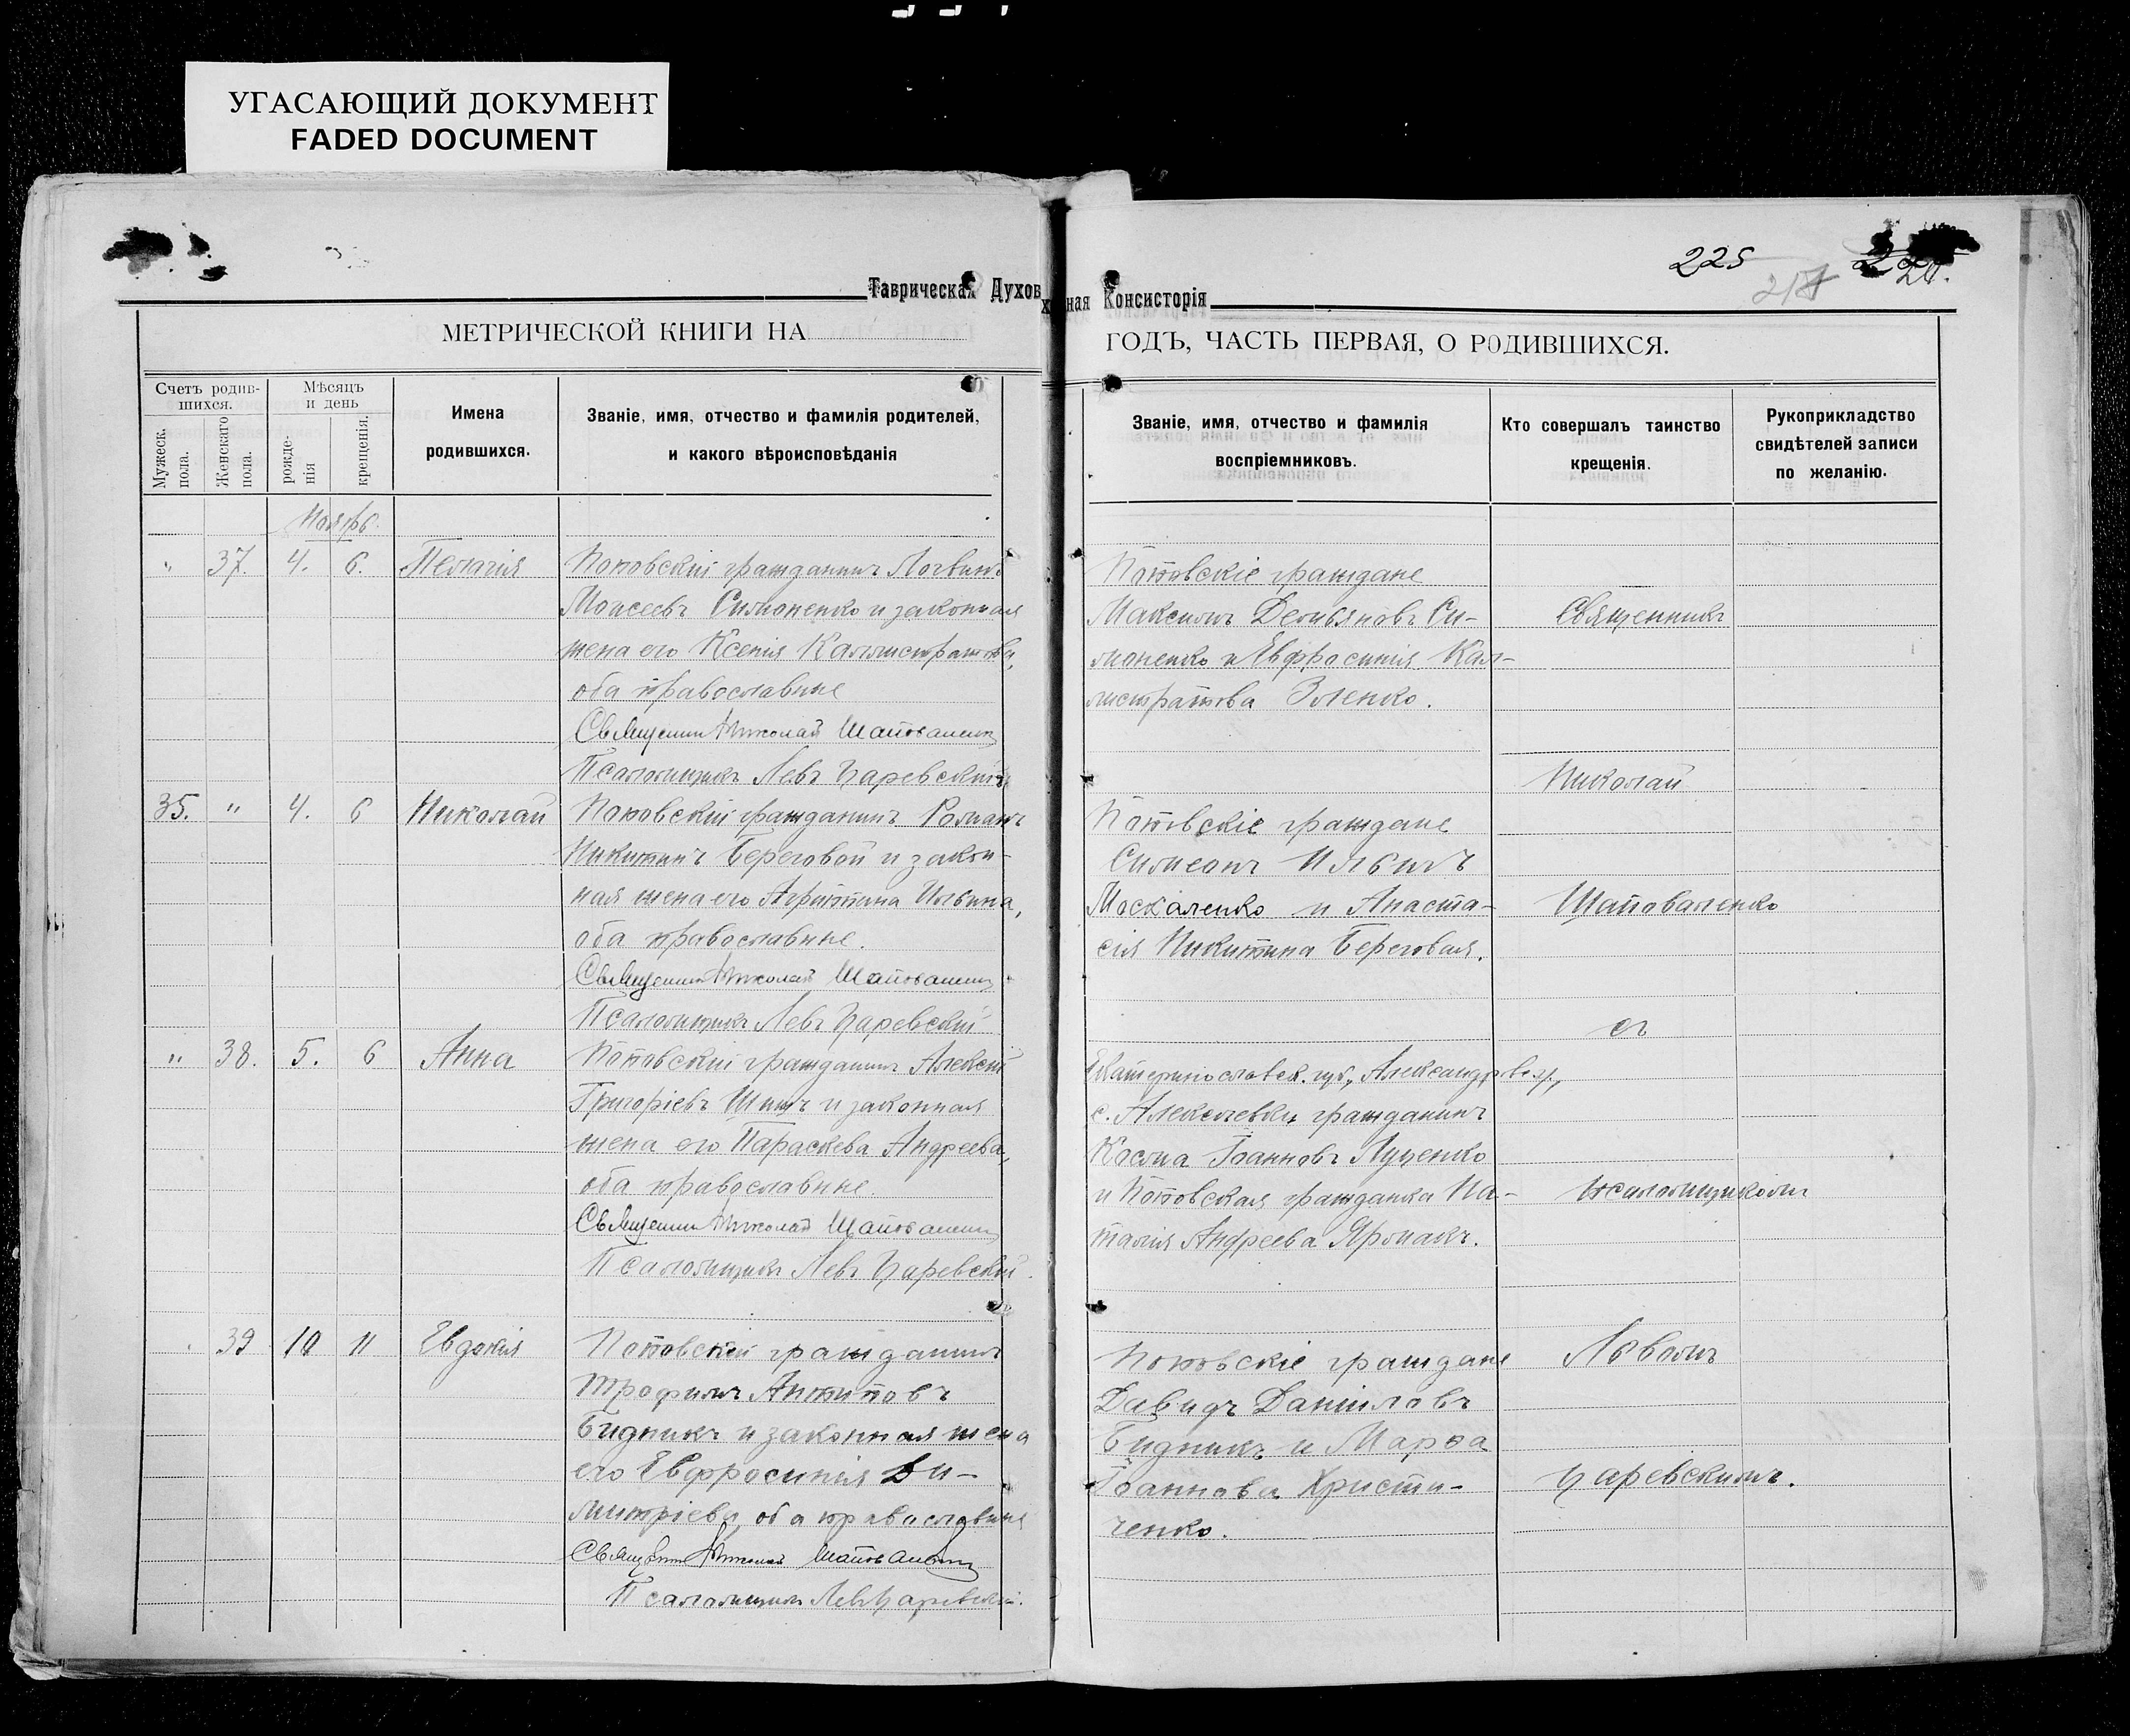 УГАСАЮЩИЙ ДОКУМЕНТ
FADED DOCUMENT
225
Таврическая Духовная Консисторія
МЕТРИЧЕСКОЙ КНИГИ НА
ГОДЪ, ЧАСТЬ ПЕРВАЯ, О РОДИВШИХСЯ.
Счетъ родившихся.
Мужеск. пола.
Женскаго пола.
Мѣсяцъ и день
рожденія
крещенія.
Имена родившихся.
Званіе, имя, отчество и фамилія родителей,
и какого вѣроисповѣданія
Званіе, имя, отчество и фамилія
воспріемниковъ.
Кто совершалъ таинство
крещенія.
Рукоприкладство
свидѣтелей записи
по желанію.
Ноябрь.
" 37. 4. 6. Пелагія
Поповскій гражданинъ Логвинъ
Моисеевъ Симоненко и законная
жена его Ксенія Каллистратова,
оба православные
Священникъ Николай Шаповаленко
Псаломщикъ Левъ Царевскій
35. " 4. 6 Николай
Поповскій гражданинъ Романъ
Никитинъ Береговой и закон-
ная жена его Агриппина Ильина,
оба православные.
Священникъ Николай Шаповаленко
Псаломщикъ Левъ Царевскій
" 38. 5. 6 Анна
Поповскій гражданинъ Алексій
Григоріевъ и законная
жена его Параскева Андреева,
оба православные.
Священникъ Николай Шаповаленко
Псаломщикъ Левъ Царевскій.
39 10 11 Евдокія
Поповскій гражданинъ
Трофимъ Антиповъ
Бидникъ и законная жена
его Евфросинія Ди-
митріева, оба православные
Священникъ Николай Шаповаленко
Псаломщикъ Левъ Царевскій.
Поповскіе граждане
Максимъ Демьяновъ Си-
моненко и Евфросинія Кал-
листратова Зленко.
Поповскіе граждане
Симеонъ Ильинъ
Москаленко и Анаста-
сія Никитина Береговая.
Екатеринославск. губ., Александров. у.,
с. Алексеевки гражданинъ
Косма Іоанновъ Луценко
и Поповская гражданка На-
талія Андреева Ярмакъ.
Поповскіе граждане
Давидъ Даніиловъ
Бидникъ и Марѳа
Іоаннова Христи-
ченко.
Священникъ
Николай
Шаповаленко
съ
псаломщикомъ
Львомъ
Царевскимъ.